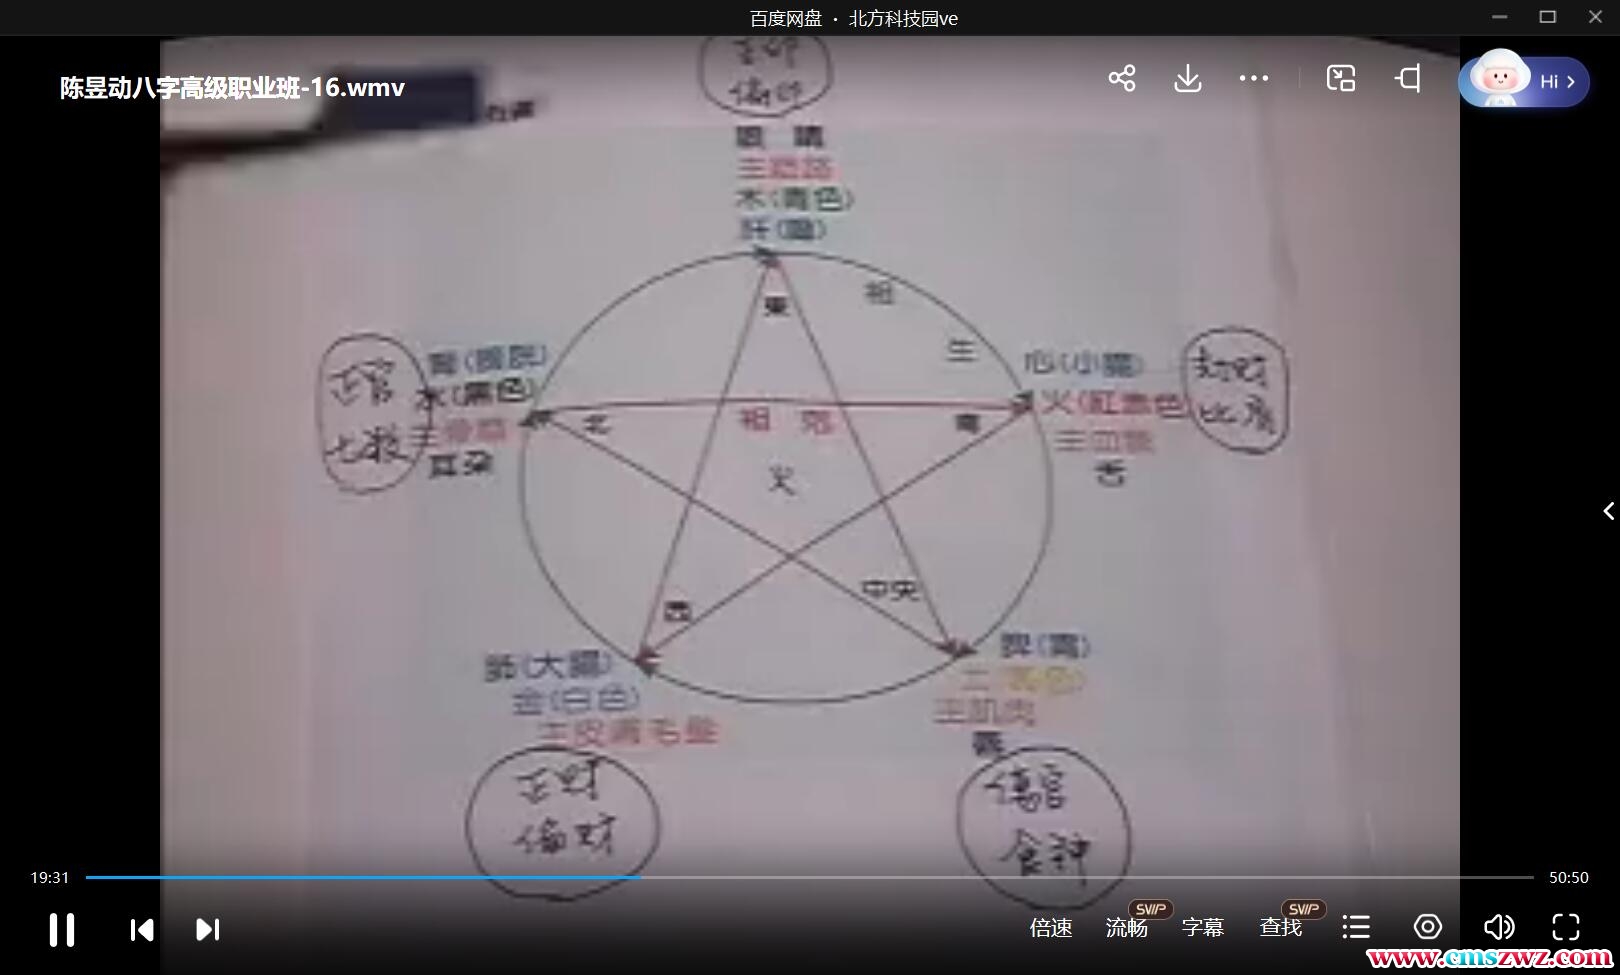 百度网盘 · 北方科技园ve
陈昱动八字高级职业班-16.wmv
Hi >
眼 睛
木(青色)
肝(膽)
東
相
生
正官
七殺
腎(膀胱)
水(黑色)
主骨髓
耳朵
北
相 剋
南
火
心(小腸)
火(紅赤色)
主血脈
舌
劫财
比肩
西
中央
肺(大腸)
金(白色)
主皮膚毛髮
正财
偏财
脾(胃)
土(黃色)
主肌肉
唇
傷官
食神
19:31
50:50
倍速
流畅
SVIP
字幕
查找
SVIP
www.cmszwz.com